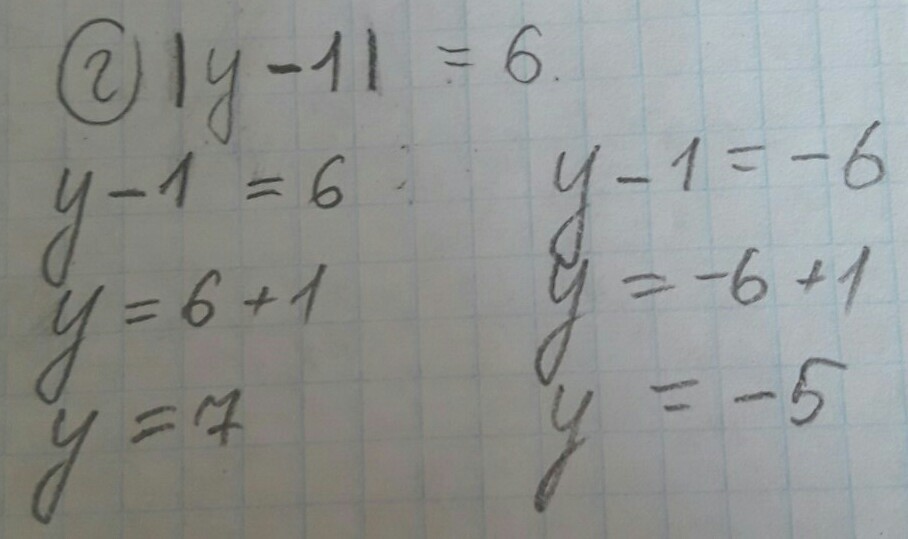 г) |y - 1| = 6.
y - 1 = 6 y - 1 = -6
y = 6 + 1 y = -6 + 1
y = 7 y = -5